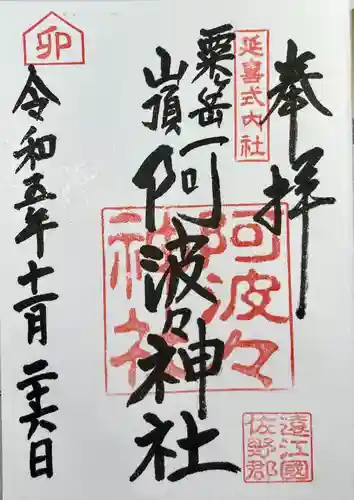 奉拝
延喜式内社
粟ヶ岳
山頂
阿波々神社
阿波々
神社
遠江國
佐野郡
卯
令和五年十一月二十六日